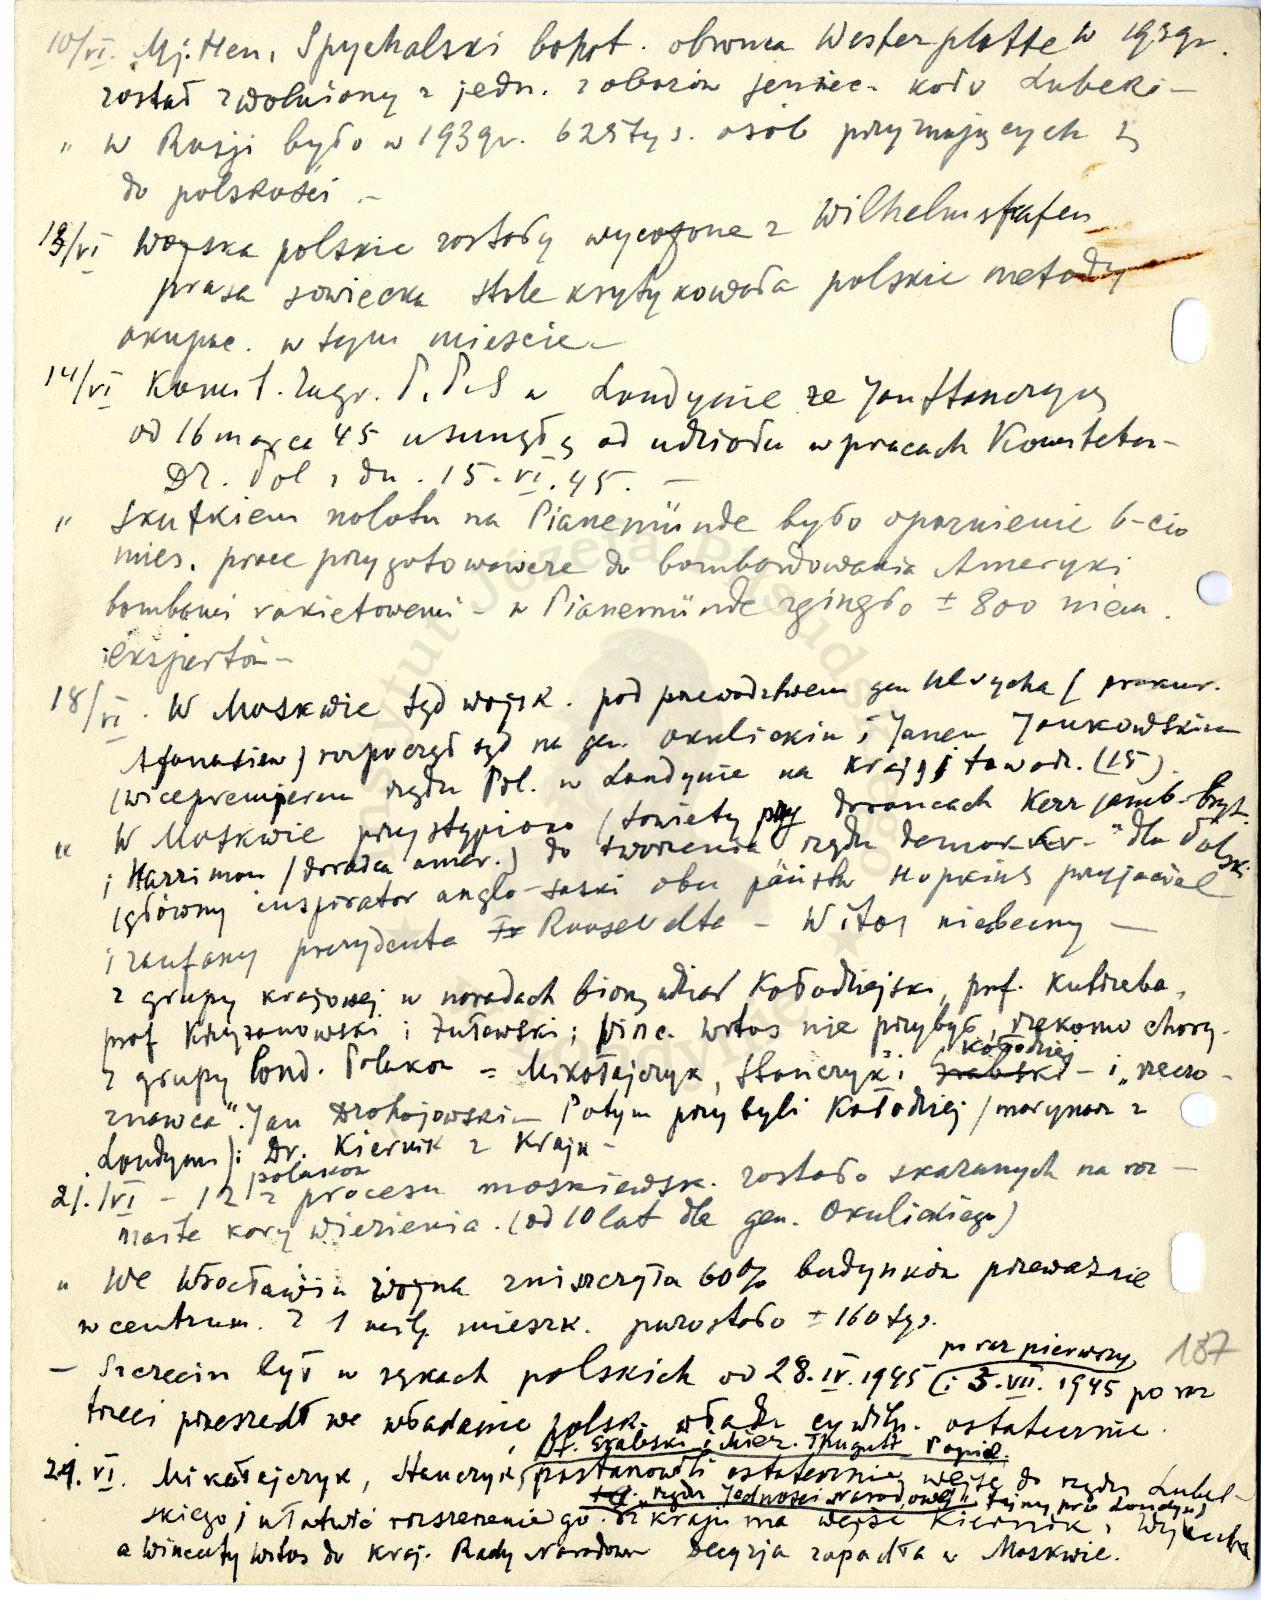 10/VI. Mj. Hen. Spychalski bohat. obrońca Westerplatte w 1939r.
został zwolniony z jedn. z obozów jeniec. koło Lubeki –
" w Rosji było w 1939r. 625 tys. osób przyznających się
do polskości. –
13/VI Wojska polskie zostały wycofane z Wilhelmshafen
prasa sowiecka stale krytykowała polskie metody
okupac. w tym mieście –
14/VI Komit. Zagr. P.P.S w Londynie ze Jan Stanczyk
od 16 marca 45 usunęło od udziału w pracach Komitetu –
Dz. Pol z dn. 15.VI.45. –
" Skutkiem nalotu na Pianemünde było opóźnienie 6-cio
mies. prace przygotowawcze do bombardowania Ameryki
bombami rakietowemi – w Pianemünde zginęło ± 800 niem.
ekspertów –
18/VI. W Moskwie sąd wojsk. pod przewodztwem gen Ulrycha (prokur.
Afanasiew) rozpoczął sąd na gen. Okulickim i Janem Jankowskim
(wicepremjerem rządu Pol. w Londynie na Kraj) i towarz. (15).
" W Moskwie przystąpiono (Sowiety przy doradcach Kerr jamb. bryt.
i Harriman (doradca amer.) do tworzenia rządu demokr. "dla Polski
(główny inspirator anglo-saski obu państw Hopkins przyjaciel
i zaufany prezydenta Roosevelta – Witos nieobecny –
z grupy krajowej w naradach biorą udział Kołodziejski, prof. Kutrzeba,
prof Krzyżanowski i Żuławski; Winc. Witos nie przybył, rzekomo chory.
z grupy lond. Polaków = Mikołajczyk, Stańczyk i Grabski Kołodziej – i „rzeczo-
znawca". Jan Drohojowski – Potym przybyli Kołodziej (marynarz z
Londynu) i Dr. Kiernik z Kraju –
21./VI – 12 polaków z procesu moskiewsk. zostało skazanych na roz –
maite kary wiezienia. (od 10 lat dla gen. Okulickiego)
" We Wrocławiu wojna zniszczyła 60% budynków przeważnie
w centrum. Z 1 milj. mieszk. pozostało ± 160 tys.
187
– Szczecin był w rękach polskich od 28.IV.1945 po raz pierwszy (i 5.VII.1945 po raz
trzeci przeszedł we władanie polsk. władz cywiln. ostatecznie.
Pf. Grabski i Mier. Thugutt Popiel
24.VI. Mikołajczyk, Stanczyk, postanowili ostatecznie wejść do rządu Lubel –
tq. „rządu Jedności Narodowej" tajny prze Londyn)
skiego i ułatwić rozszerzenie go. Z kraju ma wejść Kiernik i Wycech
a Wincenty Witos do Kraj. Rady Narodowe Decyzja zapadła w Moskwie.